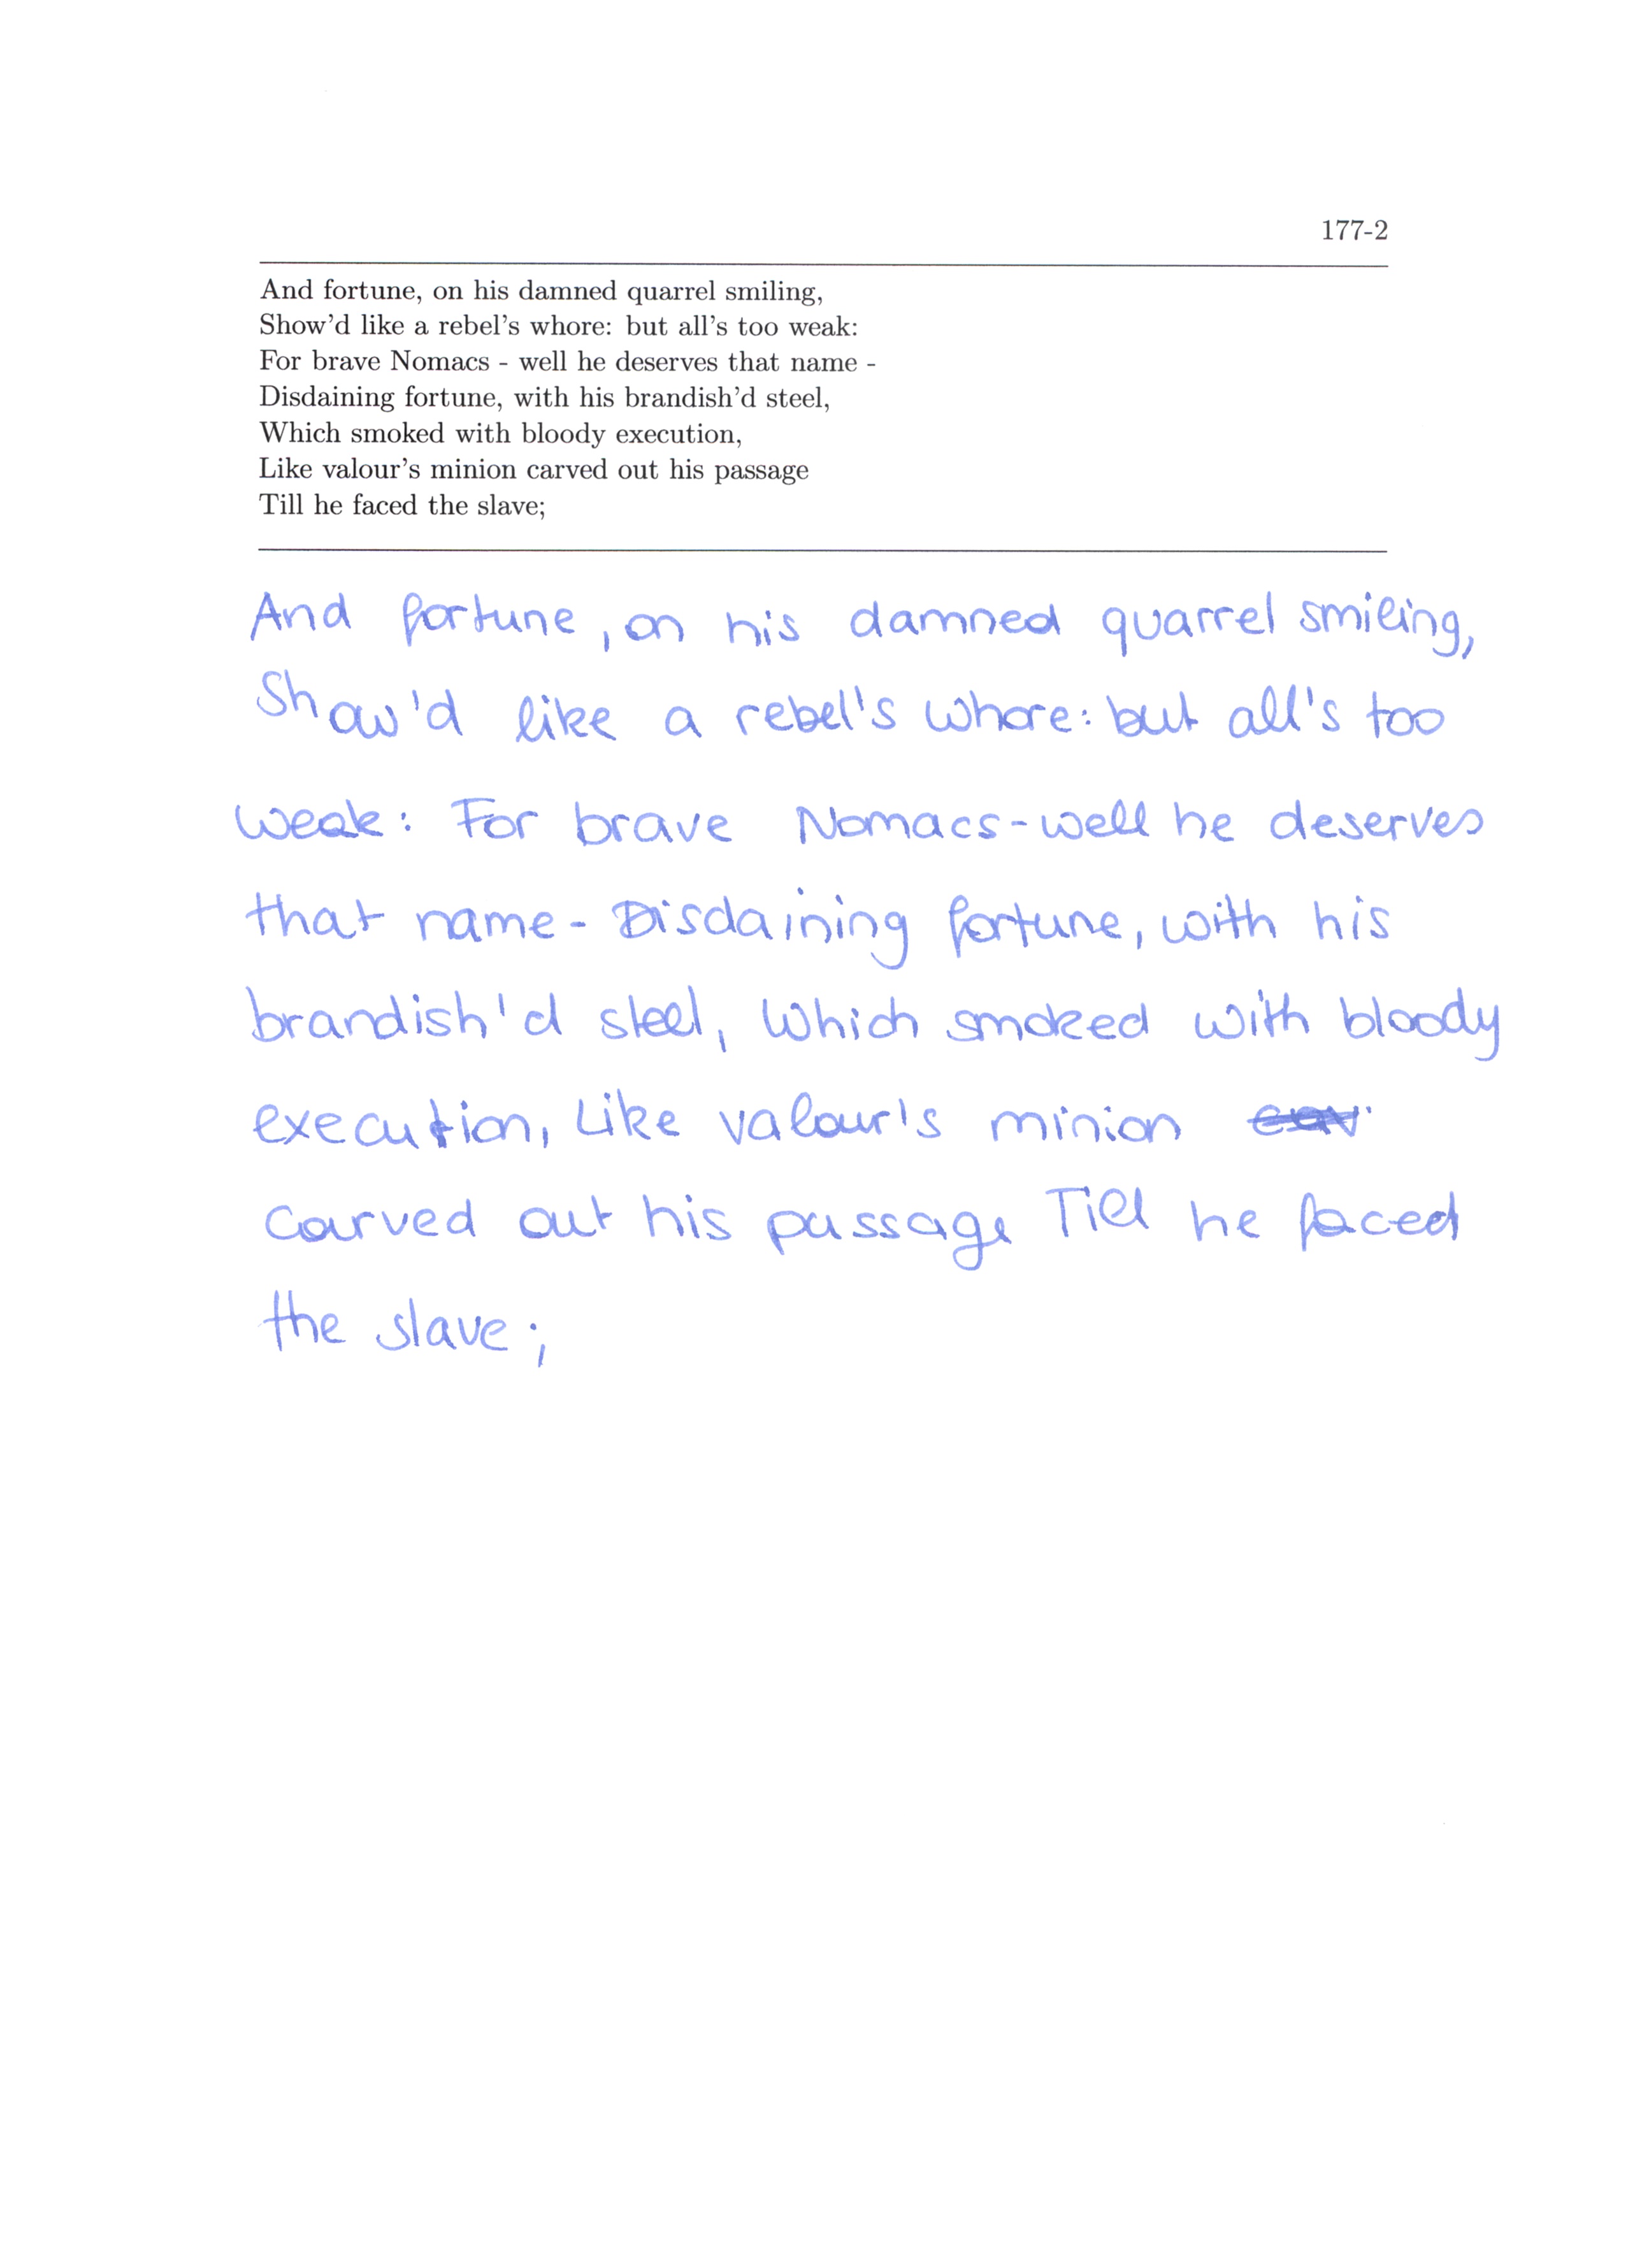 177-2
And fortune, on his damned quarrel smiling,
Show'd like a rebel's whore: but all's too weak:
For brave Nomacs - well he deserves that name -
Disdaining fortune, with his brandish'd steel,
Which smoked with bloody execution,
Like valour's minion carved out his passage
Till he faced the slave;
And fortune, on his damned quarrel smiling,
Show'd like a rebel's whore: but all's too
weak: For brave Nomacs - well he deserves
that name - Disdaining fortune, with his
brandish'd steel, Which smoked with bloody
execution, Like valour's minion
carved out his passage Till he faced
the slave;